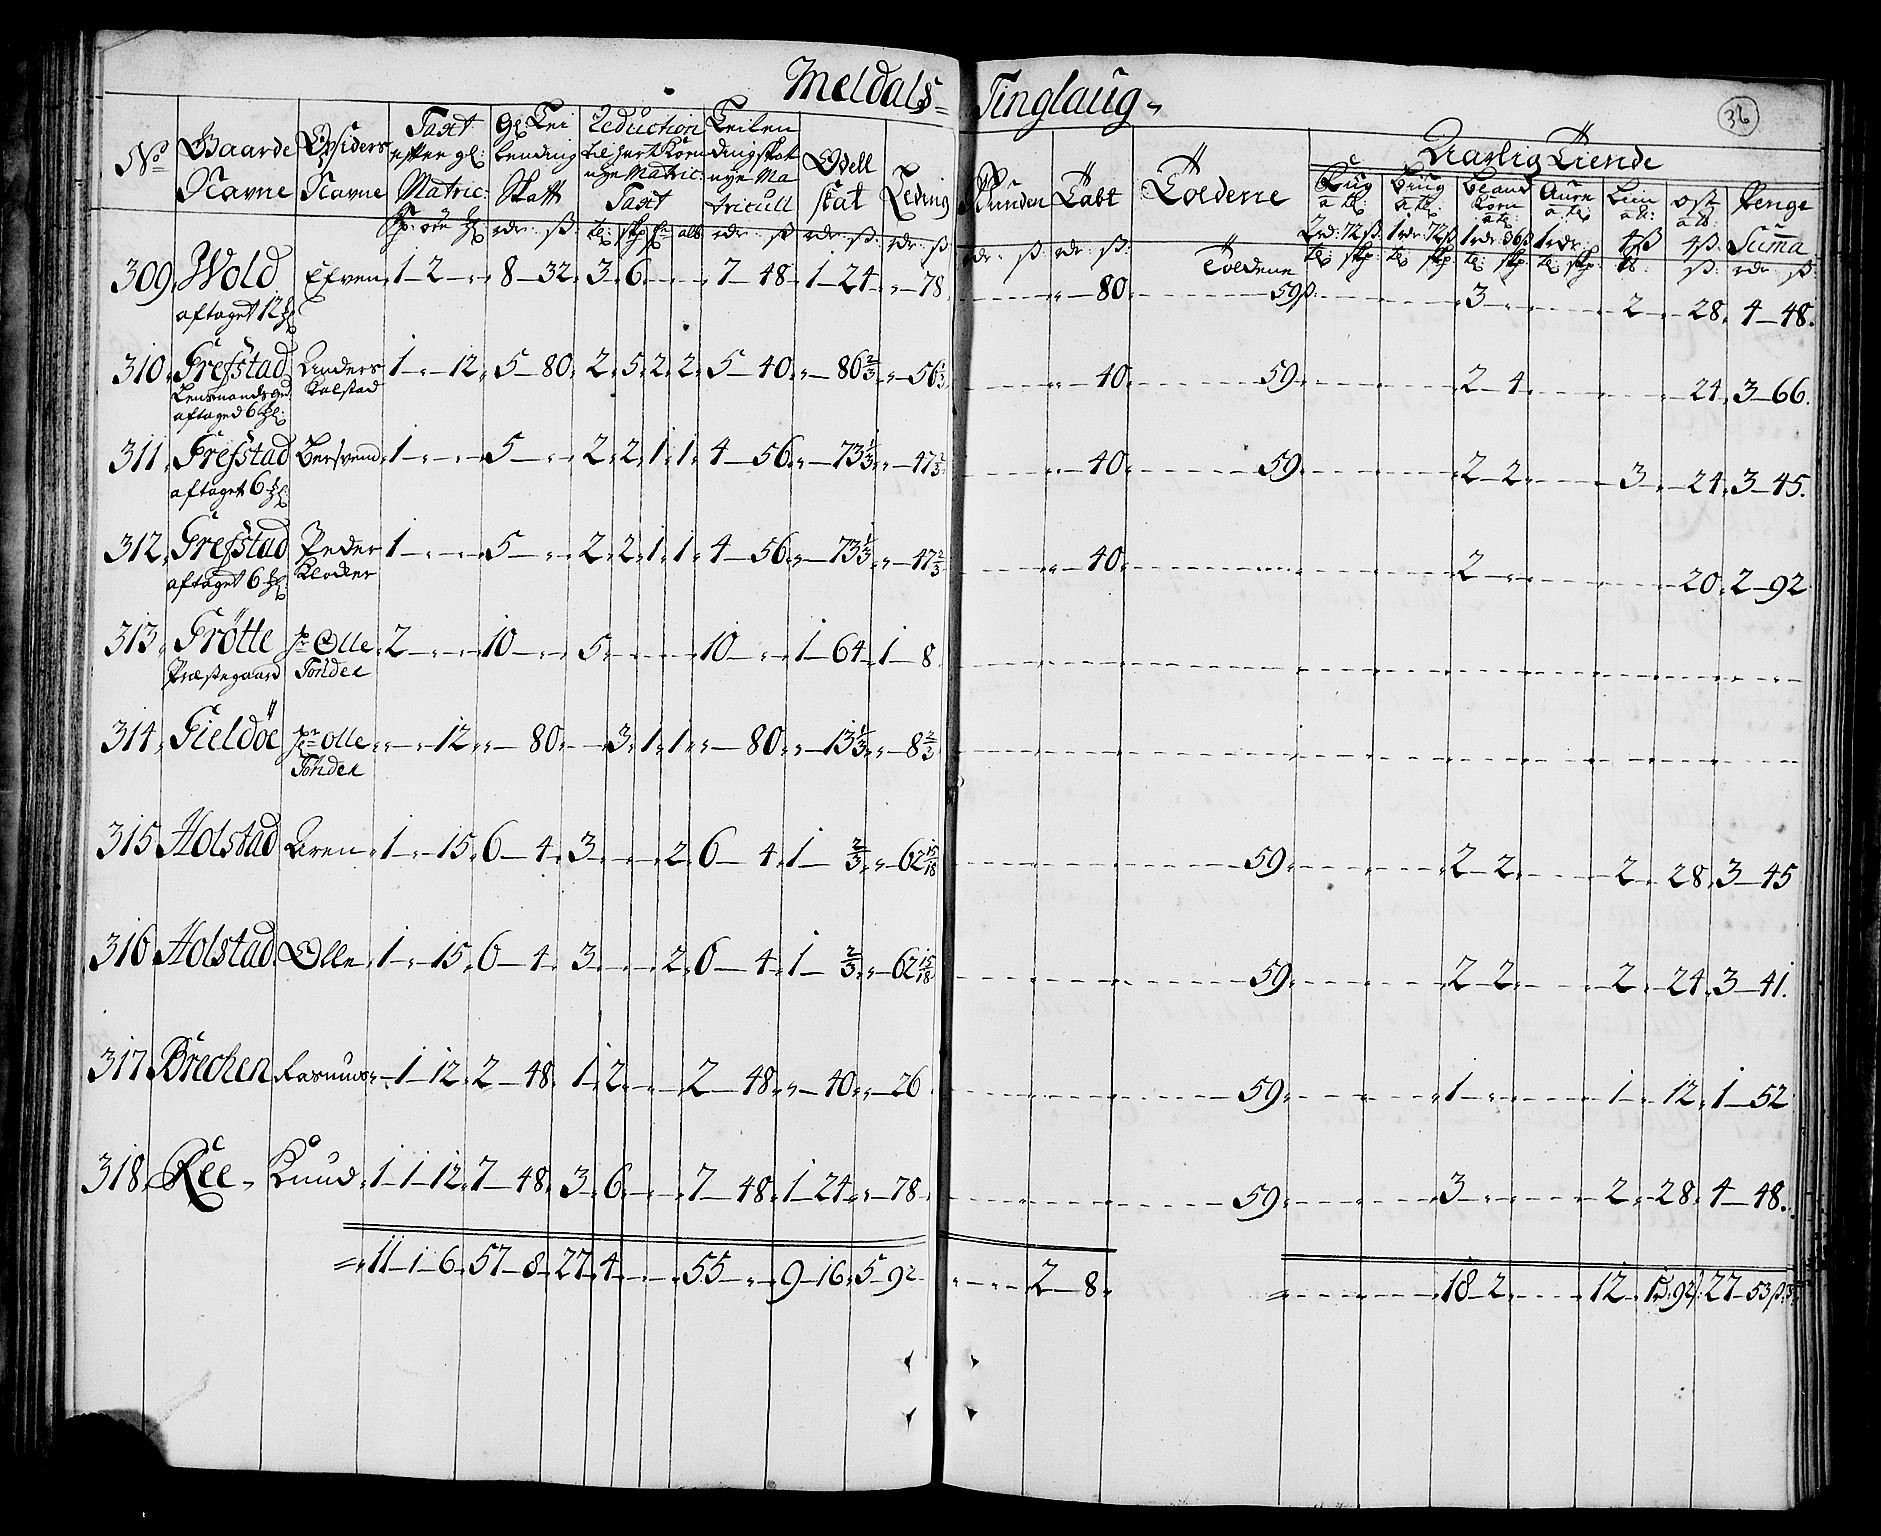 Meldals Tinglaug
36
No
Gaarde
Navne
Opsiders
Navne
Taxt
efter gl:
Matric:
Lei
lending
Skatt
Reduction
til hart Korn
nye Matric:
Taxt
Leilen
dingskat
nye Ma
tricull
Odell
skat
Leding
Tabt
Toldene
Aarlig Tiende
Rug
Biug
Bland
Korn
Lin
ost
Penge
Suma
309. Wold Efven 1-2-" 8-32. 3. 6. 7-48. 1-24. "-78. "-80. Toldene 59ß. 3 2 28. 4-48.
aftaget 12
310. Grefstad Anders 1-"-12. 5-80. 2. 5. 2. 2. 5-40. "-86 2/3 "-56 1/3 "-40. 59. 2-4. 24. 3-66.
Lensmands
Kalstad
aftaged 6
311. Grefstad Bersvend 1 5 2. 2. 1. 1. 4-56. "-73 1/3 "-47 2/3 "-40. 59. 2-2. 3 24. 3-45.
aftaget 6
312. Grefstad Peder 1 5 2. 2. 1. 1. 4-56. "-73 1/3 "-47 2/3 "-40. 2 20. 2-92
aftaget 6
313. Grötte Hr Olle 2 10 5 10 1-64. 1-8.
Præstegaard Tønder
314. Gieldöe Hr olle "-"-12. "-80. 3. 1. 1. "-80. "-13 1/3 "-8 2/3
Tønder
315. Holstad Aren 1-"-15. 6-4. 3 2. 6-4. 1-2/3 "-62 15/18 59. 2-2. 2 28. 3-45
316. Holstad Olle 1-"-15. 6-4. 3 2. 6-4. 1-2/3 "-62 15/18 59. 2-2. 2 24. 3-41.
317. Brechen Rasmus "-1-12. 2-48. 1. 2. 2-48. "-40. "-26. 59. 1 1 12. 1-52
318. Ree Knud 1-1-12. 7-48. 3. 6. 7-48. 1-24. "-78. 59. 3 2 28. 4-48.
11-1-6. 57-8. 27. 4. 55-" 9-16. 5-92 2-8. 18-2. 12 92 27-53ß